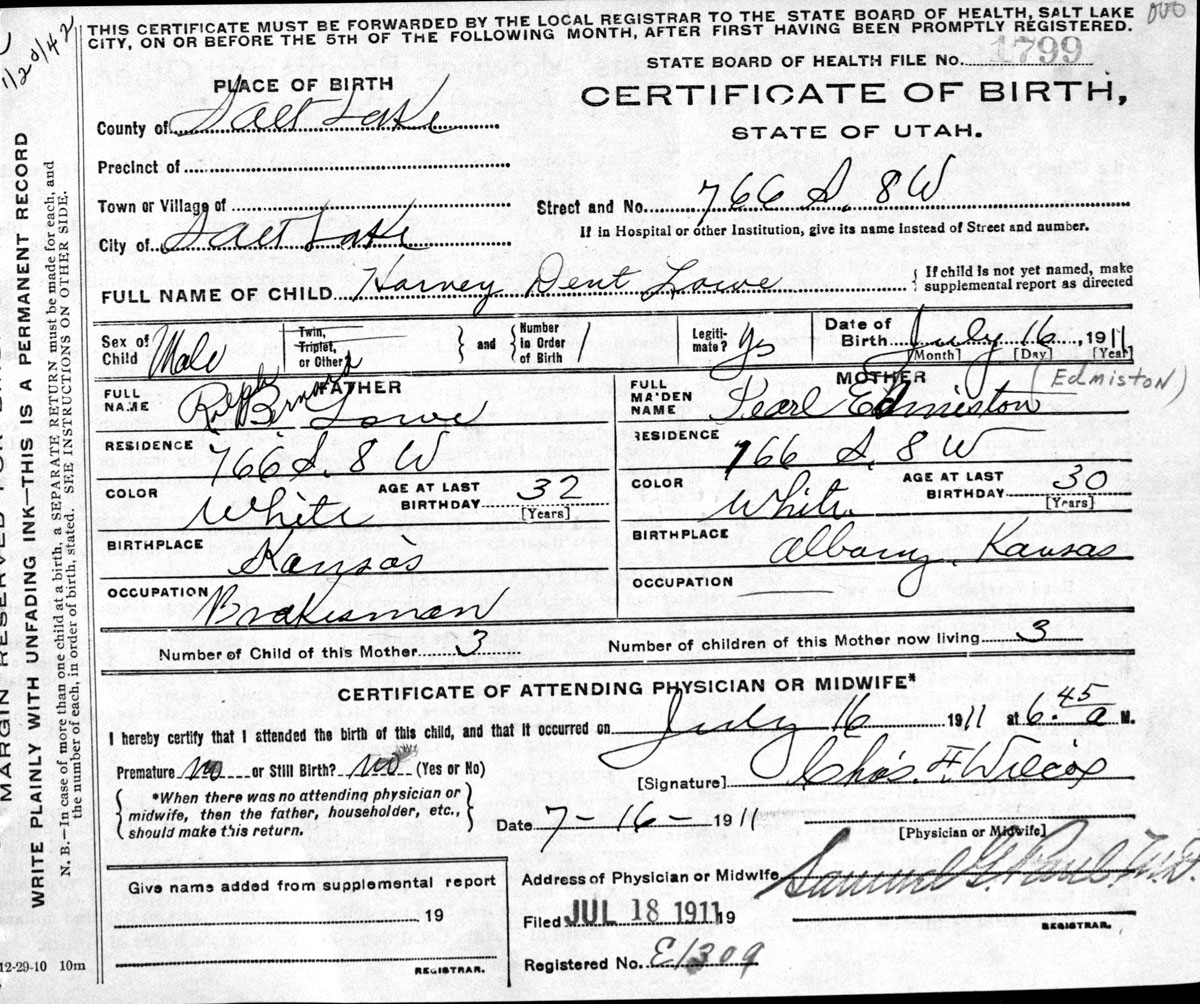 THIS CERTIFICATE MUST BE FORWARDED BY THE LOCAL REGISTRAR TO THE STATE BOARD OF HEALTH, SALT LAKE
CITY, ON OR BEFORE THE 5TH OF THE FOLLOWING MONTH, AFTER FIRST HAVING BEEN PROMPTLY REGISTERED.
1/20/42
STATE BOARD OF HEALTH FILE No. 1799
PLACE OF BIRTH
CERTIFICATE OF BIRTH,
STATE OF UTAH.
County of Salt Lake
Precinct of
Town or Village of
Street and No. 766 S. 8 W
If in Hospital or other Institution, give its name instead of Street and number.
City of Salt Lake
FULL NAME OF CHILD Harvey Dent Lowe
If child is not yet named, make
supplemental report as directed
Sex of Child Male
Twin, Triplet, or Other
and
Number in Order of Birth 1
Legitimate? Yes
Date of Birth July 16, 1911
[Month] [Day] [Year]
FATHER
FULL NAME Ralph Bernard Lowe
RESIDENCE 766 S. 8 W
COLOR White
AGE AT LAST BIRTHDAY 32
[Years]
BIRTHPLACE Kansas
OCCUPATION Brakesman
MOTHER
(Edmiston)
FULL MAIDEN NAME Pearl Edmiston
RESIDENCE 766 S. 8 W
COLOR White.
AGE AT LAST BIRTHDAY 30
[Years]
BIRTHPLACE Albany, Kansas
OCCUPATION
Number of Child of this Mother 3
Number of children of this Mother now living 3
CERTIFICATE OF ATTENDING PHYSICIAN OR MIDWIFE*
I hereby certify that I attended the birth of this child, and that it occurred on July 16 1911 at 6.45 a M.
Premature No or Still Birth? No (Yes or No)
[Signature] Chas. F. Wilcox
*When there was no attending physician or
midwife, then the father, householder, etc.,
should make this return.
Date 7-16-1911
[Physician or Midwife]
Address of Physician or Midwife
Samuel G. Paul, M.D.
Filed JUL 18 1911 19
REGISTRAR.
Registered No. E1309
Give name added from supplemental report
19
REGISTRAR.
12-29-10 10m
WRITE PLAINLY WITH UNFADING INK—THIS IS A PERMANENT RECORD
N. B.—In case of more than one child at a birth, a SEPARATE RETURN must be made for each, and
the number of each, in order of birth, stated. SEE INSTRUCTIONS ON OTHER SIDE.